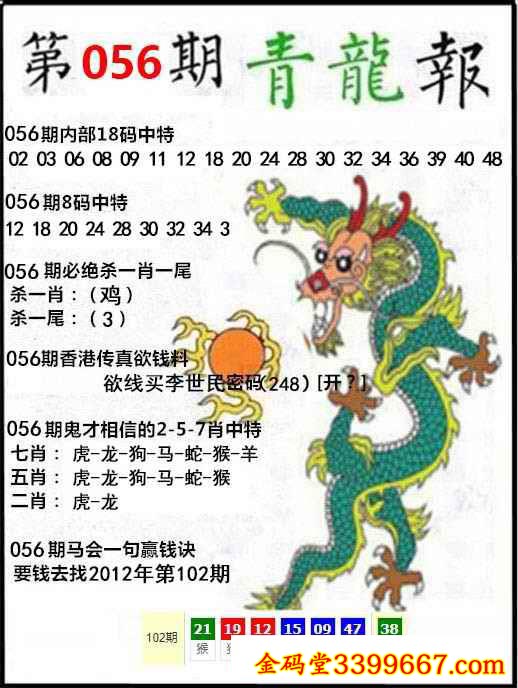 第056期青龍報
056期内部18码中特
02 03 06 08 09 11 12 18 20 24 28 30 32 34 36 39 40 48
056期8码中特
12 18 20 24 28 30 32 34 3
056期必绝杀一肖一尾
杀一肖：（鸡）
杀一尾：（3）
056期香港传真欲钱料
欲线买李世民密码(248）[开？]
056期鬼才相信的2-5-7肖中特
七肖：虎-龙-狗-马-蛇-猴-羊
五肖：虎-龙-狗-马-蛇-猴
二肖：虎-龙
056期马会一句赢钱诀
要钱去找2012年第102期
102期 21 19 12 15 09 47 38
猴
金码堂3399667.com